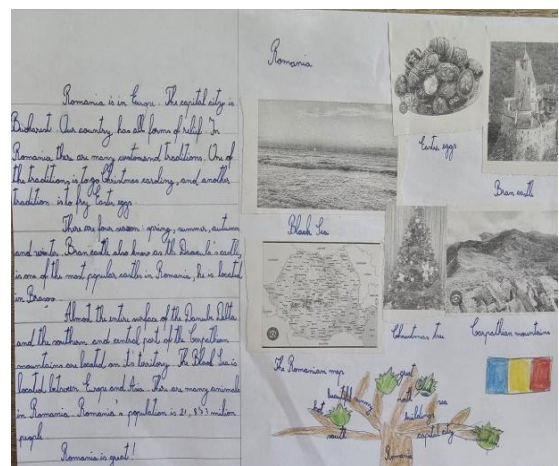 Romania is in Europe. The capital city is
Bucharest. Our country has all forms of relief. In
Romania there are many customs and traditions. One of
the traditions is to go Christmas caroling, and another
tradition is to fry Easter eggs.
There are four season: spring, summer, autumn
and winter. Bran castle also know as the Dracula's castle,
is one of the most popular castles in Romania, he is located
in Brasov.
Almost the entire surface of the Danube Delta
and the southern, and central part of the Carpathian
mountains are located on it's territory. The Black Sea is
located between Europe and Asia. There are many animals
in Romania. Romania's population is 21,833 milion
people.
Romania is great!
Romania
Easter eggs
Bran castle
Black Sea
Christmas tree
Carpathian mountains
The Romanian map
great
beautiful
sunny
north
sea
hot
building
south
capital city
Romania